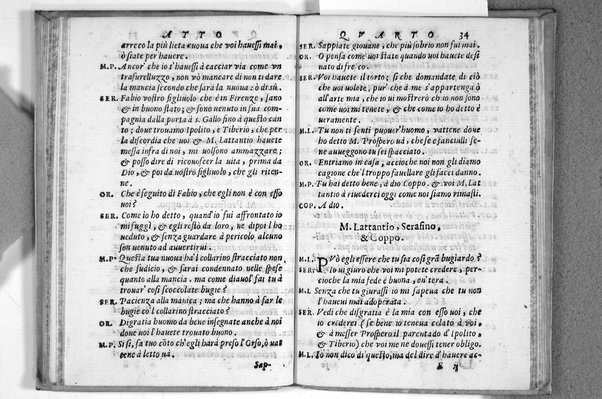 ATTO
arreco la più lieta nuova che voi havessi mai,
ò siate per havere.
M.P. Ancor' che io t'havessi à cacciar via come un
trafurelluzzo, non vò mancare di non ti dare
la mancia secondo che sarà la nuova: ò di sù.
SER. Fabio vostro figliuolo che è in Firenze, sano
& in buono stato; & sono venuto in sua com-
pagnia dalla porta à s. Gallo sino à questo can
to; doue trouamo Ipolito, e Tiberio, che per
la discordia che uoi & M. Lattantio hauete
messa infra di noi, mi uolsono ammazzare;
& posso dire di riconoscer la uita, prima da
Dio, & poi da uostro figliuolo, che gli riten-
ne.
OR. Che è seguito di Fabio, che egli non è con esso
uoi?
SER. Come io hò detto, quand'io fui affrontato io
mi fuggi, & egli restò da loro, ne dipoi l'ho
ueduto, & senza guardare à pericolo alcuno
son uenuto ad auuertirui.
M.P. Questa tua nuoua ha'l collarino stracciato non
che sudicio, & sarai condennato nelle spese
quanto alla mancia. ma come diauol' fai tu à
trouar' così scoccolate bugie?
SER. Pacienza alla mancia; ma che hanno à far le
bugie cò'l collarino stracciato?
OR. Digratia buomo da bene insegnate anche à noi
doue uoi l'hauete trouato buono.
M.P. Si sì, fa tuo cõto ch'egli harà preso l'Orso, ò uat
tene à letto uà.
Sap-
QVARTO 34
SER. Sappiate giouane, che più sobrio non fui mai.
OR. O pensa come uoi state quando uoi hauete desi
nato di fresco.
SER. Voi hauete il torto; si che domandate di ciò
che uoi uolete, pur' che à me s'appartenga ò
all'arte mia, che io ui mostrerò ch'io non sono
come uoi mi tenete, & che come io ho detto è
ueramente.
M.L. Tu non ti senti pouer'huomo, vattene doue
ho detto M. Prospero uà, che se i fanciulli se-
ne auueggono tu sei spacciato.
OR. Entriamo in casa, accioche noi non gli diamo
cagione che'l troppo fauellare gli facci danno.
M.P. Tu hai detto bene, à dio Coppo. & voi M. Lat
tantio à riuederci oggi come noi siamo rimasti.
COP. A dio.
M. Lattantio, Serafino,
& Coppo.
M.L. PVò egli essere che tu sia così grã bugiardo?
SER. Io ui giuro che voi mi potete credere, per-
cioche la mia fede è buona, et è tera.
M.L. Senza che tu giurassi io mi sapeua che tu non
l'haueui mai adoperata.
SER. Vedi che disgratia è la mia con esso uoi, che
io crederei (se bene io teneua celato à voi,
& à messer Prospero il parentado d'Ipolito,
& Tiberio) che voi me ne douessi tener obligo.
M.L. Io non dico di questo, ma del dire d'hauere ac-
E ij